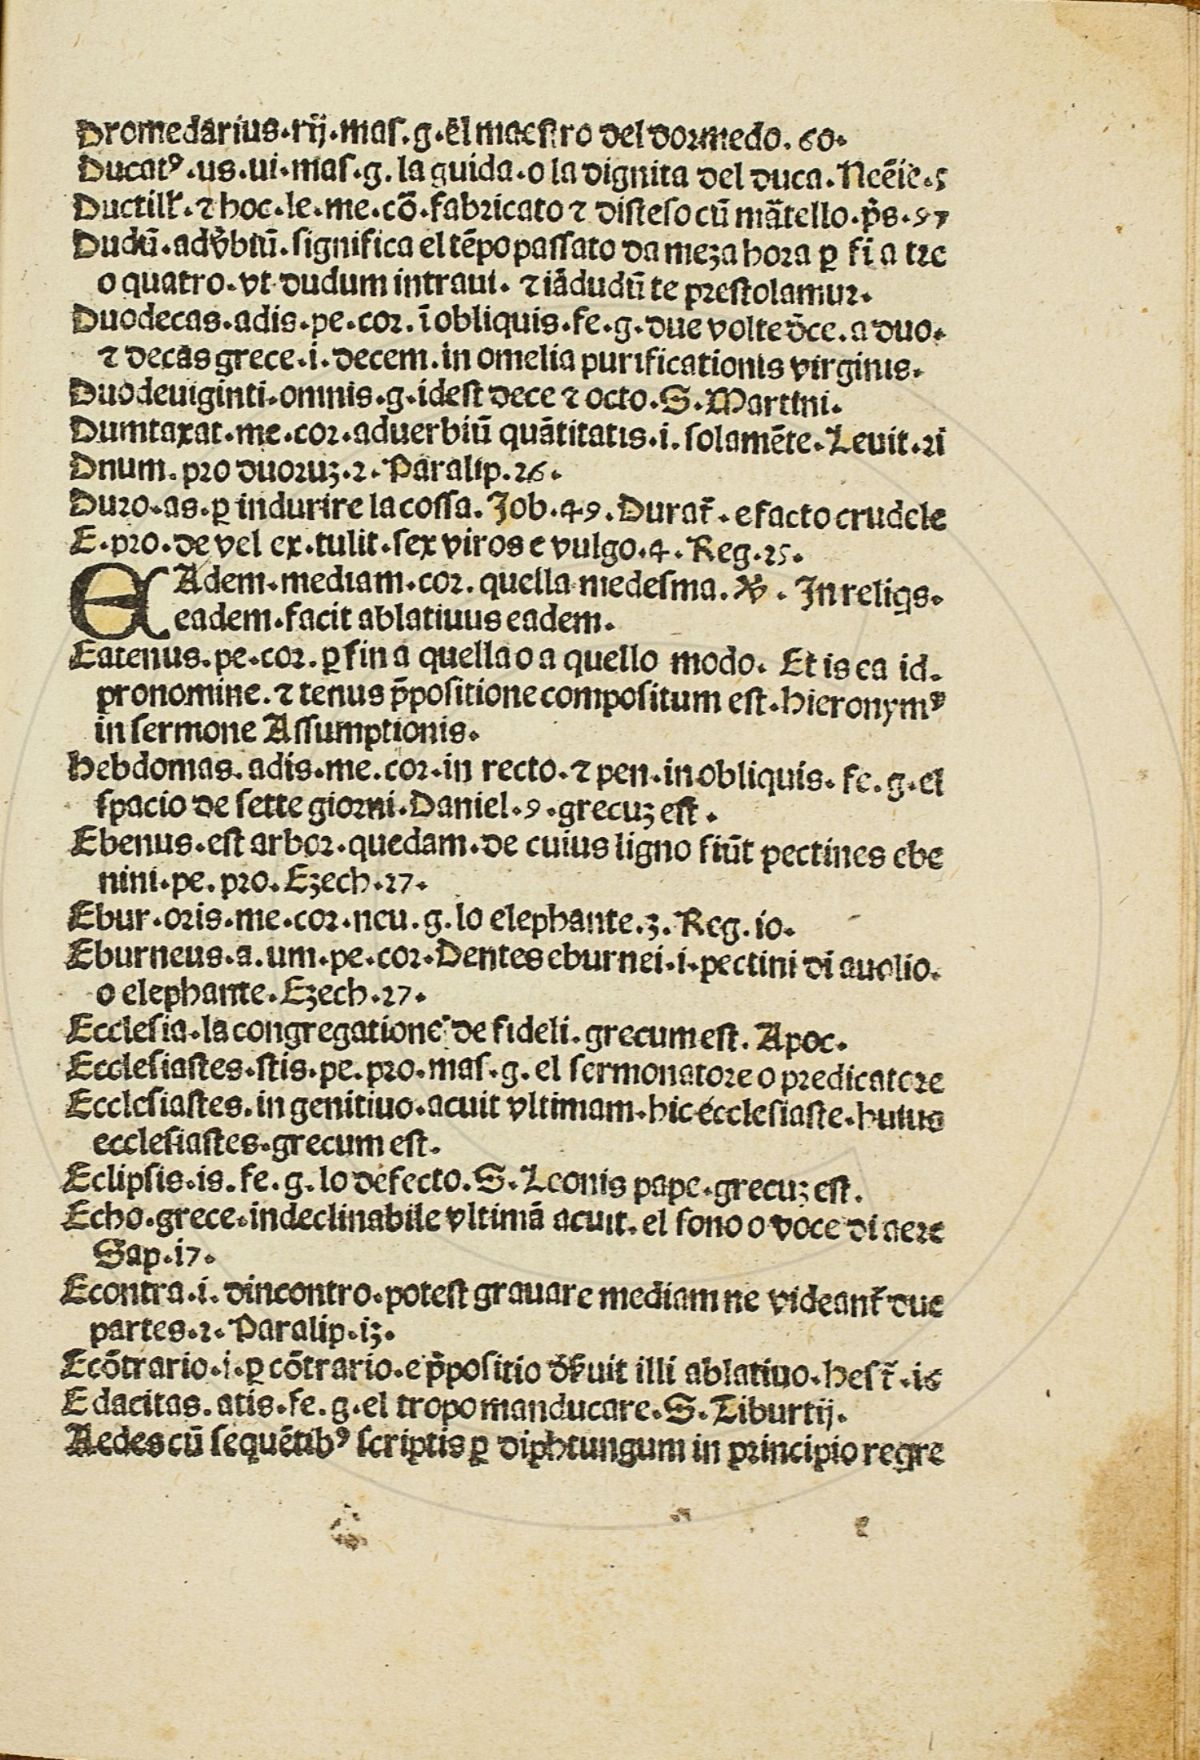 Dromedarius.rij.mas.g.el maestro del dormedo.60.
Ducatꝰ.us.ui.mas.g.la guida.o la dignita del duca.Neēie.5
Ductilr̄.⁊ hoc.le.me.cō.fabricato ⁊ disteso cū mātello.p̄s.97
Dudū.adv̄biū.significa el tēpo passato da meza hora ꝑ fi a tre
o quatro.vt dudum intraui.⁊ iādudū te prestolamur.
Duodecas.adis.pe.cor.ī obliquis.fe.g.due volte d̄ce.a duo.
⁊ decas grece.i.decem.in omelia purificationis virginis.
Duodeuiginti.omnis.g.idest dece ⁊ octo.S.Martini.
Dumtaxat.me.cor.aduerbiū quātitatis.i.solamēte.Leuit.ri
Dnum.pro duoruꝫ.2.Paralip.26.
Duro.as.ꝑ indurire la cossa.Job.49.Durat̄.e facto crudele
E.pro.de vel ex.tulit.sex viros e vulgo.4.Reg.25.
EAdem.mediam.cor.quella medesma. In reliqs.
eadem.facit ablatiuus eadem.
Eatenus.pe.cor.ꝑ fin a quella o a quello modo. Et is ea id.
pronomine.⁊ tenus p̄positione compositum est.hieronymꝰ
in sermone Assumptionis.
hebdomas.adis.me.cor.in recto.⁊ pen.in obliquis.fe.g.el
spacio de sette giorni.Daniel.9.grecuꝫ est.
Ebenus.est arbor.quedam.de cuius ligno fiūt pectines ebe
nini.pe.pro.Ezech.27.
Ebur.oris.me.cor.neu.g.lo elephante.3.Reg.io.
Eburneus.a.um.pe.cor.Dentes eburnei.i.pectini di auolio.
o elephante.Ezech.27.
Ecclesia.la congregatione de fideli.grecum est.Apoc.
Ecclesiastes.stis.pe.pro.mas.g.el sermonatore o predicatore
Ecclesiastes.in genitiuo.acuit vltimam.hic ecclesiaste.huius
ecclesiastes.grecum est.
Eclipsis.is.fe.g.lo defecto.S.Leonis pape.grecuꝫ est.
Echo.grece.indeclinabile vltimā acuit.el sono o voce di aere
Sap.i7.
Econtra.i.dincontro.potest grauare mediam ne videant̄ due
partes.2.Paralip.i3.
Ecōtrario.i.ꝑ cōtrario.e p̄positio d̄ẜuit illi ablatiuo.hest̄.i6
Edacitas.atis.fe.g.el tropo manducare.S.Tiburtij.
Aedes cū sequētibꝰ scriptis ꝑ diphtungum in principio regre